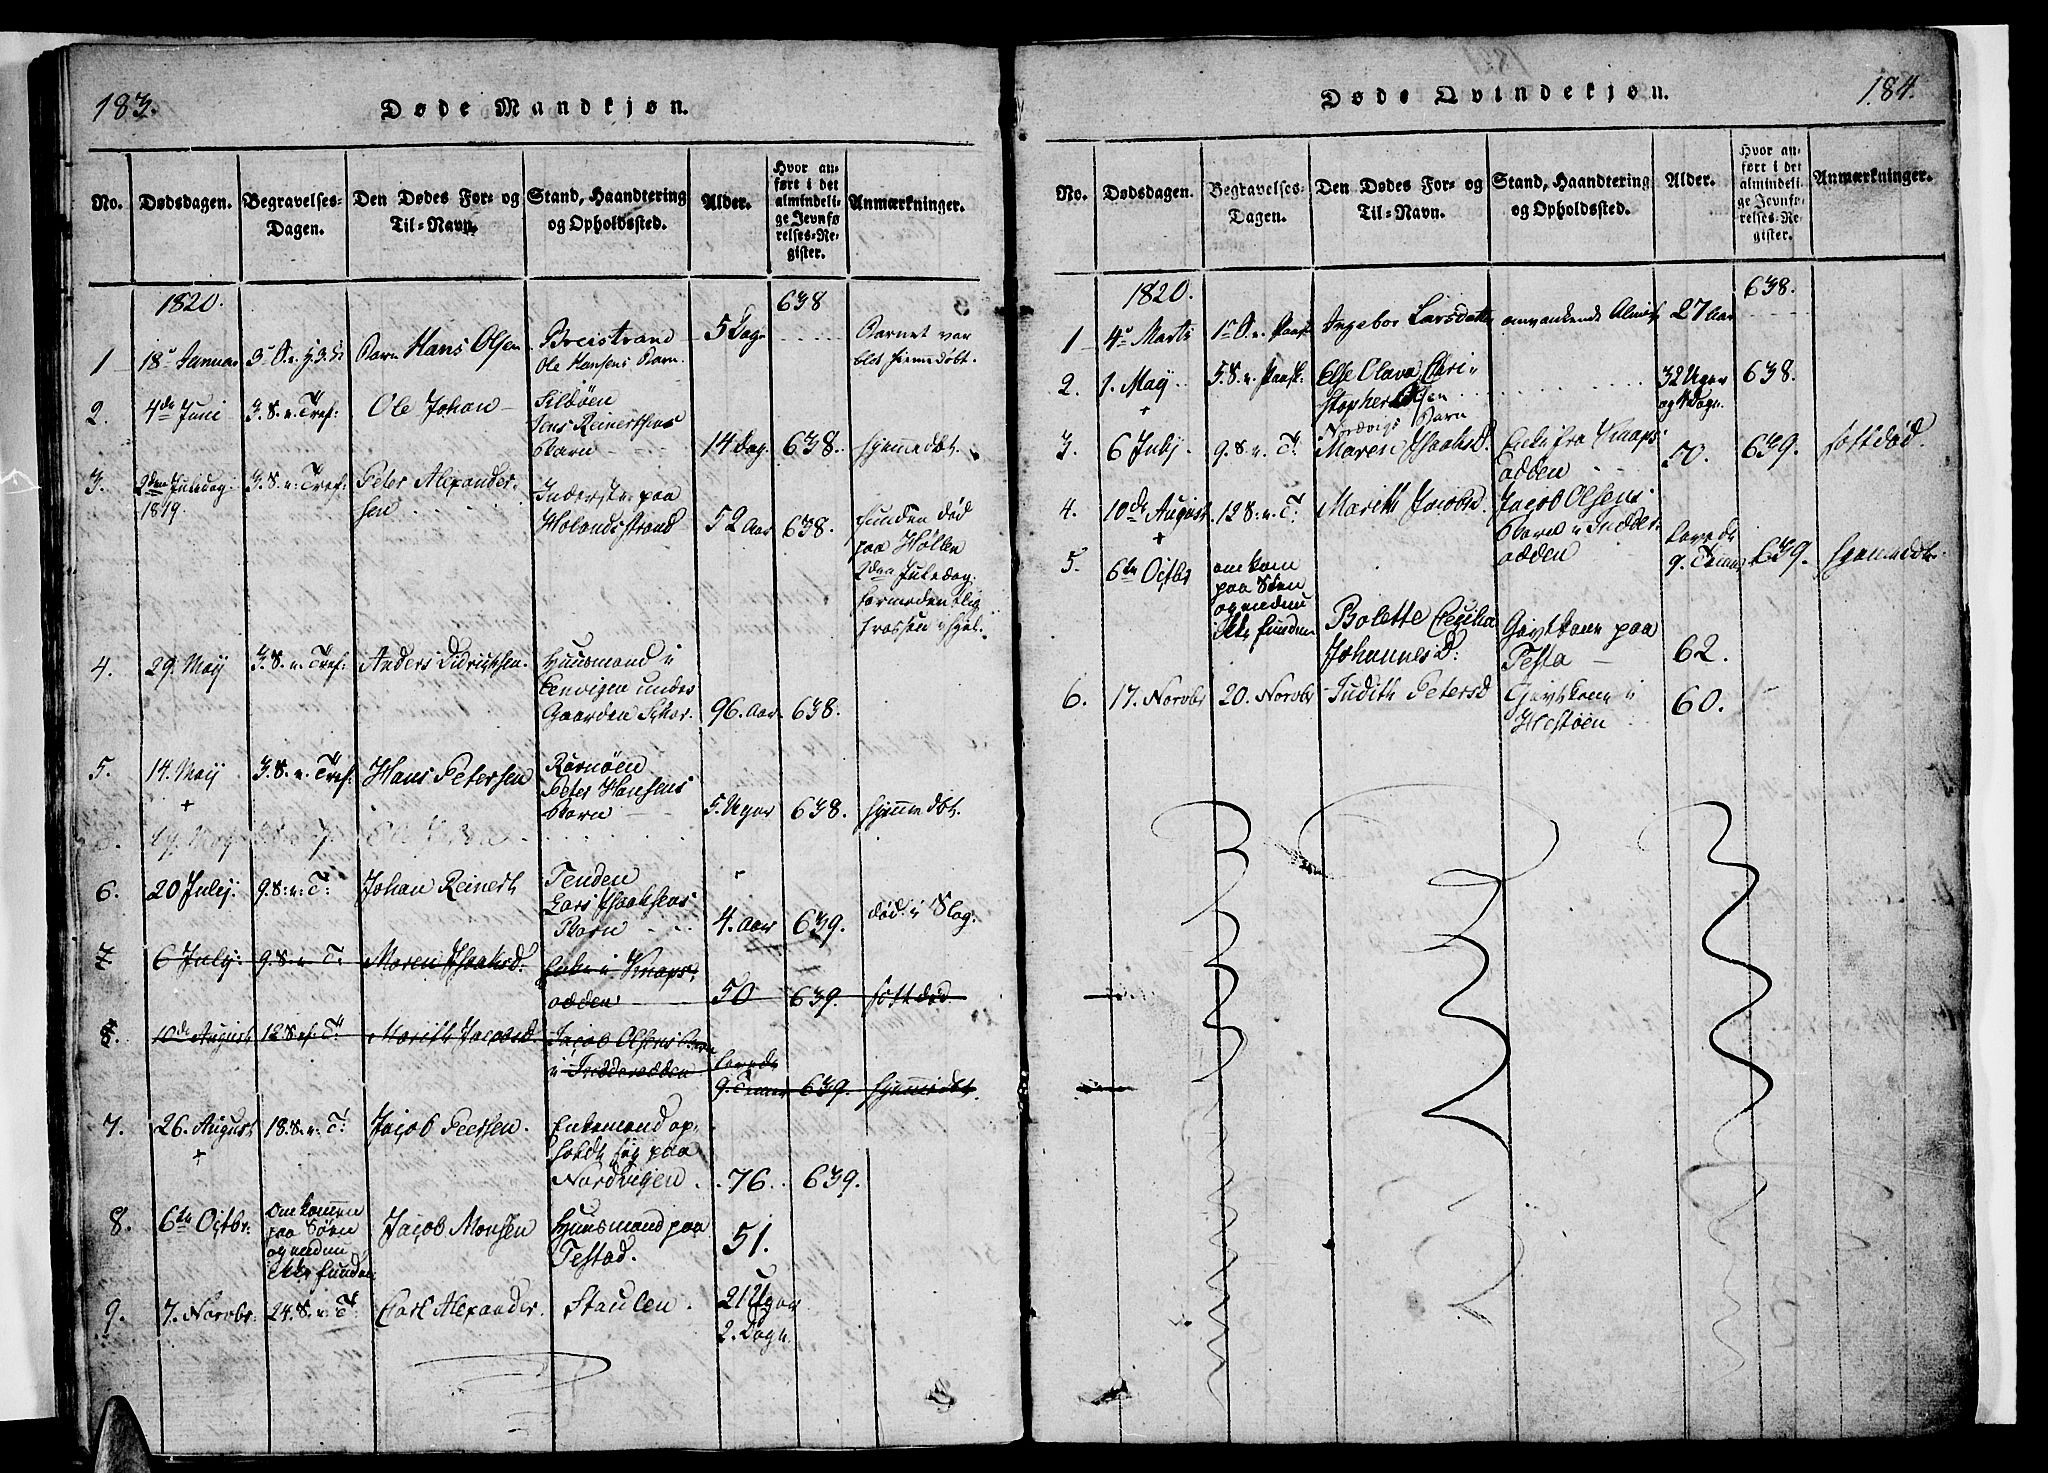 183.
Døde Mandkjøn.
No.
Dødsdagen.
Begravelses-
Dagen.
Den Dødes For- og
Til-Navn.
Stand, Haandtering
og Opholdssted.
Alder.
Hvor an-
ført i det
almindeli-
ge Jevnfø-
relses-Re-
gister.
Anmærkninger.
1820.
638
1
18 Januar
Barn Hans Olsen
Breistrand
Ole Hansens Barn.
5 Dage
Barnet var
blot hiemedøbt.
2.
4de Juni
3. S. e. Tref:
Ole Johan
Jens Reinertsens
Barn
14 Dag.
638.
hjemmedbt.
3.
2den Juledag
1819.
3. S. e. Tref:
Peter Alexander-
sen
Inderste paa
Holandsstrand
52 Aar
638.
funden død
paa Høllen
2den Juledag.
4.
29. May
3. S. e. Tref:
Anders Didrichsen.
Huusmand i
Gaarden
96. Aar.
638.
5.
14. May
+
3. S. e. Tref.
Hans Petersen
Rørnøen
Peter Hansens
Barn
5. Uger
638.
hjemmedbt.
6.
20 July.
9. S. e. T:
Johan Reinert
Tenden
Lars Isaaksens
Barn
4. Aar
639.
død i Slag.
7
6 July.
9. S. e. T:
Maren Isaaksd.
Enke i Knaps-
odden
50
639.
sottdød.
8.
10de August
12. S. ef. T:
Marith Jacobsd.
Jacob Olsens Barn
i Indderodden
levede
9. Timer
639.
hjemmedbt.
7.
26. August
+
18. S. e. T:
Jacob Peersen.
Enkemand op-
holdt sig paa
Nordvigen.
76.
639.
8.
6te Octbr.
omkommen
paa Søen
og endnu
ikke funden
Jacob Monsen
Huusmand paa
Testad.
51.
9.
7. Novbr.
24. S. e. T.
Carl Alexander.
Staulen.
21 Uger
2. Dagn.
184.
Døde Qvindekjøn.
No.
Dødsdagen.
Begravelses-
Dagen.
Den Dødes For- og
Til-Navn.
Stand, Haandtering
og Opholdssted.
Alder.
Hvor an-
ført i det
almindeli-
ge Jevnfø-
relses-Re-
gister.
Anmærkninger.
1820.
638.
1
4 Marti
Ingebor Larsdatter
omvankende
27 Aar
2.
1. May
+
5. S. e. Paask.
Else Olava Chri-
stopher
Nordvigs Barn
32 Uger
og 4 Dagn.
638.
3.
6 July
9. S. e. T.
Maren Isaaksd.
Enke fra Knaps-
odden
50.
639.
sottdød.
4.
10de August
+
12 S. e. T:
Marith Jacobsd
Jacob Olsens
Barn i Indder-
odden
levede
9. Timer
639.
hjemmedbt.
5.
6te Octbr
omkom
paa Søen
og endnu
ikke funden
Bolette Cecilia
Johannesd:
Givtkone paa
Testa
62.
6.
17. Novbr
20. Novbr
Judith Petersd
Givtkone i
Hestøen
60.